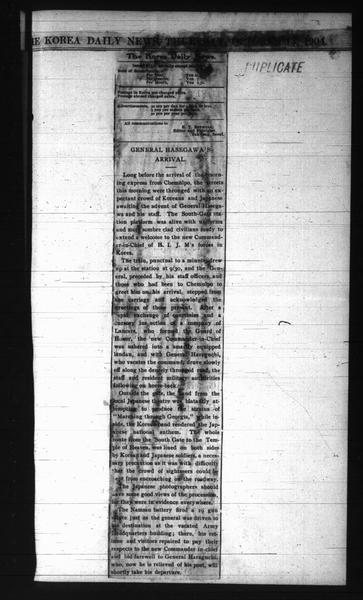 KOREA DAILY NEWS, 1904.
DUPLICATE
The Korea Daily News.
GENERAL HASEGAWA'S
ARRIVAL.
Long before the arrival of the
ing express from Chemulpo, the streets
this morning were thronged with an ex-
pectant crowd of Koreans and Japanese
awaiting the advent of General Hasega-
wa and his staff. The South-Gate sta-
tion platform was alive with uniforms
and more sombre clad civilians ready to
extend a welcome to the new Command-
er-in-Chief of H. I. J. M's forces in
Korea.
The train, punctual to a minute, drew
up at the station at 9/30, and the Gen-
eral, preceded by his staff officers and
those who had been to Chemulpo to
greet him on his arrival, stepped from
the carriage and acknowledged the
greetings of those present. After a
exchange of courtesies and a
cursory inspection of a company of
Lancers, who formed the Guard of
Honor, the new Commander-in-Chief
was ushered into a smartly equipped
landau, and with General Haraguchi,
who vacates the command, drove slowly
off along the densely thronged road, the
staff and resident military
following on horse-back.
Outside the gate, the band from the
local Japanese theatre was blatantly at-
tempting to produce the strains of
"Marching through Georgia," while in-
side, the Korean band rendered the Jap-
anese national anthem. The whole
route from the South Gate to the Tem-
ple of Heaven, was lined on both sides
by Korean and Japanese soldiers, a neces-
sary precaution as it was with difficulty
that the crowd of sightseers could be
kept from encroaching on the roadway.
The Japanese photographers should
have some good views of the procession,
for they were in evidence everywhere.
The Namsan battery fired a 19 gun
salute just as the general was driven to
his destination at the vacated Army
Headquarters building; there, his ret-
inue and visitors repaired to pay their
respects to the new Commander in-chief
and bid farewell to General Haraguchi,
who, now he is relieved of his post, will
shortly take his departure.